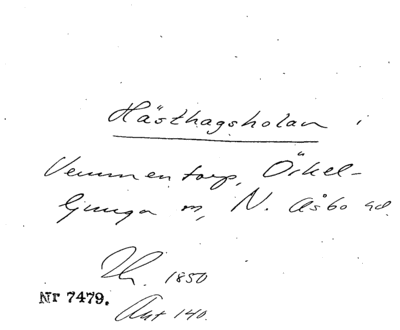 Hästhagsholan i
Vemmentorp, Örkel-
ljunga sn, N. Åsbo hd.
1850
Nr 7479.
Akt 140.